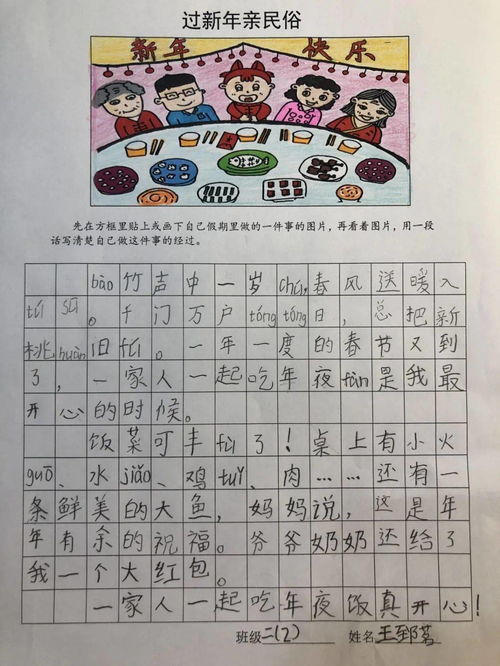 过新年亲民俗
新年 快乐
先在方框里贴上或画下自己假期里做的一件事的图片，再看着图片，用一段
话写清楚自己做这件事的经过。
bào竹声中一岁chú，春风送暖入
tú sū。千门万户tóng tóng日，总把新
桃huàn旧fú。一年一度的春节又到
了，一家人一起吃年夜fàn是我最
开心的时候。
饭菜可丰fù了！桌上有小火
guō、水jiǎo、鸡tuǐ、肉……还有一
条鲜美的大鱼，妈妈说，这是年
年有余的祝福。爷爷奶奶还给了
我一个大红包。
一家人一起吃年夜饭真开心！
班级二(2) 姓名王郅